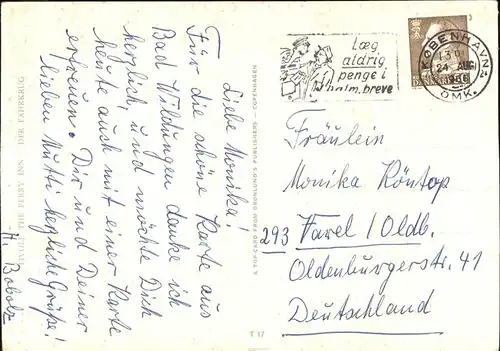 Liebe Monika!
Für die schöne Karte aus
Bad Wildungen danke ich
herzlich, und möchte Dich
heute auch mit einer Karte
erfreuen. Dir und Deiner
lieben Mutti herzliche Grüße!
H. Bobolz
THE FERRY INN DER FÄHRKRUG
A TOP-CARD FROM GRØNLUNDS PUBLISHERS — COPENHAGEN
T 17
Læg
aldrig
penge i
alm. breve
KØBENHAVN
24 AUG
1966
OMK.
Fräulein
Monika Röntop
293 Varel/Oldb.
Oldenburgerstr. 41
Deutschland